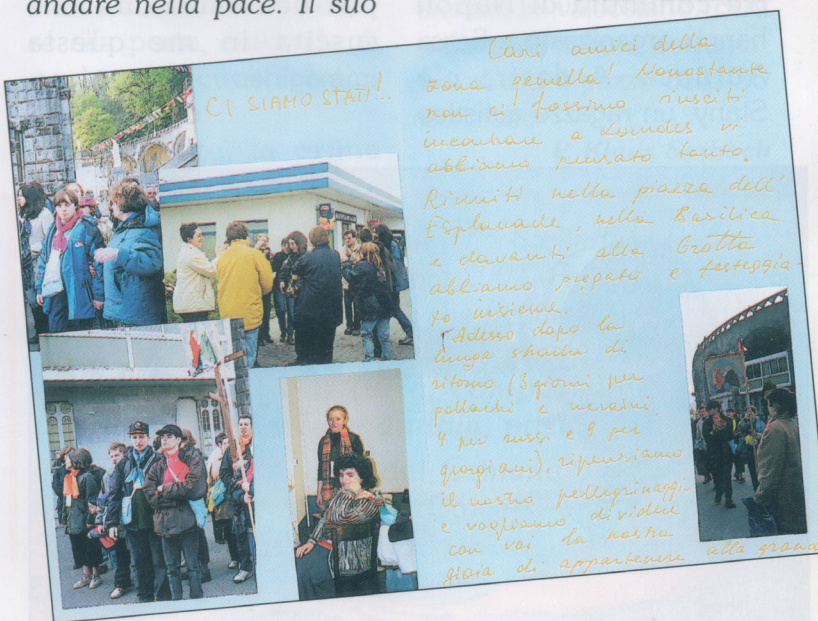 andare nella pace. Il suo
CI SIAMO STATI!..
Cari amici della
zona gemella! Nonostante
non ci fossimo riusciti
incontrare a Lourdes vi
abbiamo pensato tanto.
Riuniti nella piazza dell'
Esplanade, nella Basilica
e davanti alla Grotta
abbiamo pregato e festeggia-
to insieme.
Adesso dopo la
lunga strada di
ritorno (3 giorni per
pollachi e ucraini,
4 per russi e 9 per
giorgiani), ripensiamo
il nostro pellegrinaggio
e vogliamo dividere
con voi la nostra
gioia di appartenere alla grand